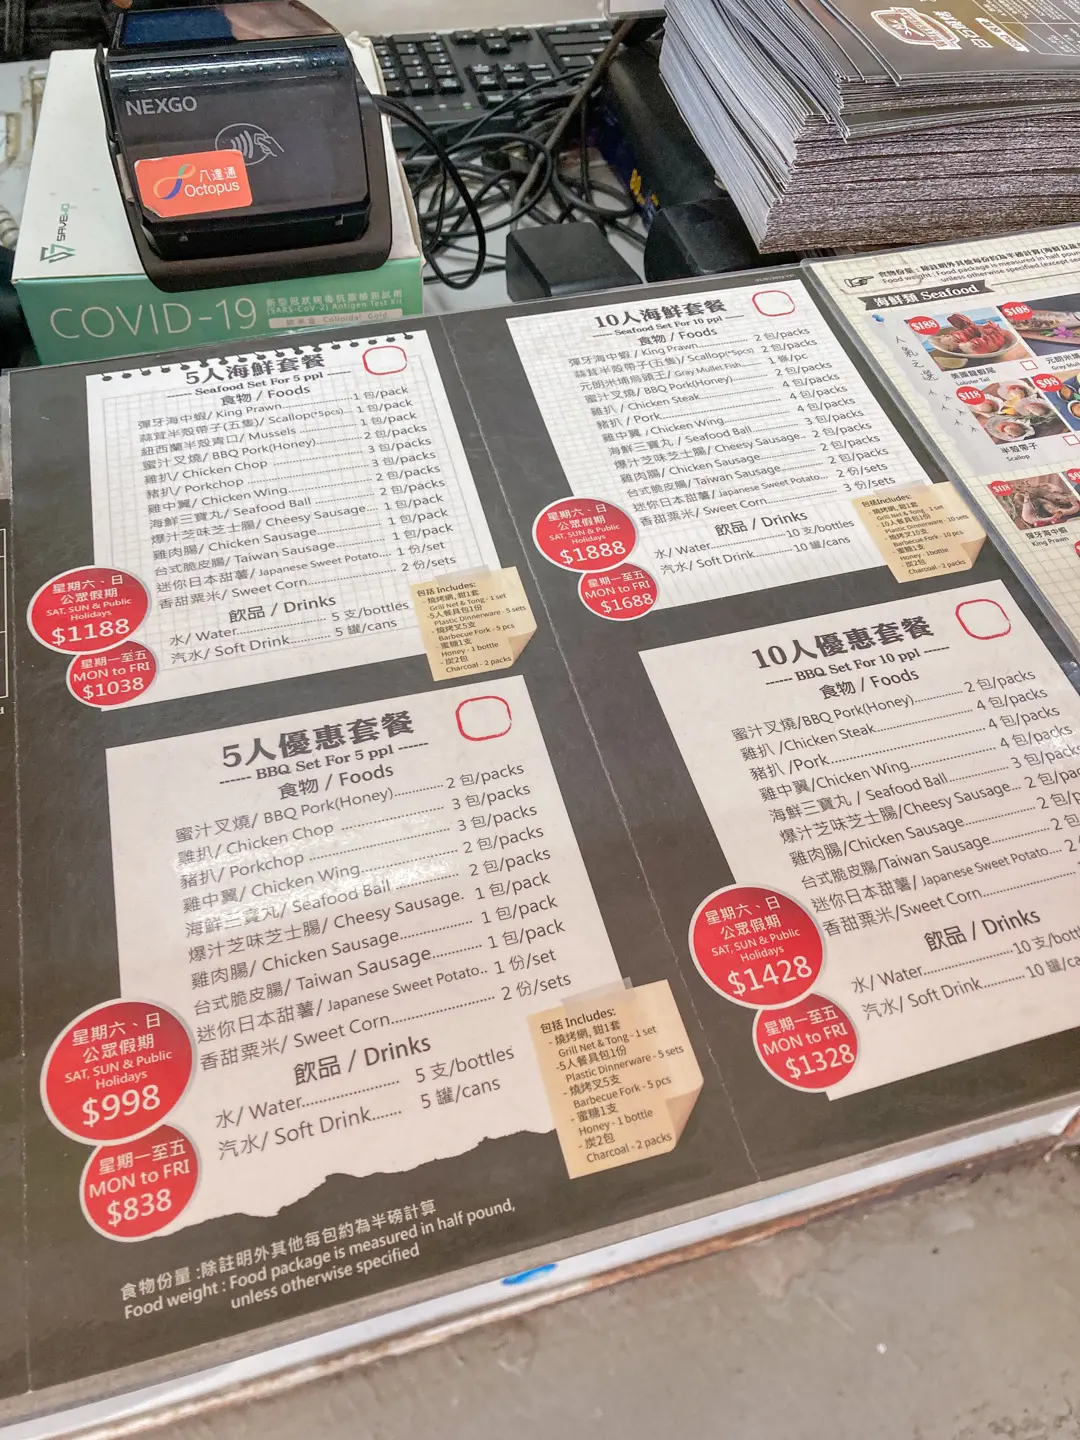 NEXGO
八達通
Octopus
SAVE
COVID-19
新型冠狀病毒抗原檢測試劑
(SARS-CoV-2) Antigen Test Kit
Colloidal Gold
5人海鮮套餐
------ Seafood Set For 5 ppl ------
食物 / Foods
彈牙海中蝦/ King Prawn 1 包/pack
蒜茸半殼帶子(五隻)/ Scallop(*5pcs) 1 包/pack
紐西蘭半殼青口/ Mussels 1 包/pack
蜜汁叉燒/ BBQ Pork(Honey) 2 包/packs
雞扒/ Chicken Chop 3 包/packs
豬扒/ Porkchop 3 包/packs
雞中翼/ Chicken Wing 2 包/packs
海鮮三寶丸/ Seafood Ball 2 包/packs
爆汁芝味芝士腸/ Cheesy Sausage 1 包/pack
雞肉腸/ Chicken Sausage 1 包/pack
台式脆皮腸/ Taiwan Sausage 1 包/pack
迷你日本甜薯/ Japanese Sweet Potato 1 份/set
香甜粟米/ Sweet Corn 2 份/sets
飲品 / Drinks
水/ Water 5 支/bottles
汽水/ Soft Drink 5 罐/cans
星期六、日
公眾假期
SAT, SUN & Public
Holidays
$1188
星期一至五
MON to FRI
$1038
包括 Includes:
- 燒烤網, 鉗1套
Grill Net & Tong - 1 set
-5人餐具包1份
Plastic Dinnerware - 5 sets
- 燒烤叉5支
Barbecue Fork - 5 pcs
- 蜜糖1支
Honey - 1 bottle
- 炭2包
Charcoal - 2 packs
10人海鮮套餐
------ Seafood Set For 10 ppl ------
食物 / Foods
彈牙海中蝦 / King Prawn 2 包/packs
蒜茸半殼帶子(五隻)/ Scallop(*5pcs) 2 包/packs
元朗米埔烏頭王/ Gray Mullet Fish 1 條/pc
蜜汁叉燒/ BBQ Pork(Honey) 2 包/packs
雞扒 / Chicken Steak 4 包/packs
豬扒 / Pork 4 包/packs
雞中翼 / Chicken Wing 4 包/packs
海鮮三寶丸 / Seafood Ball 3 包/packs
爆汁芝味芝士腸/ Cheesy Sausage 2 包/packs
雞肉腸/ Chicken Sausage 2 包/packs
台式脆皮腸/ Taiwan Sausage 2 包/packs
迷你日本甜薯/ Japanese Sweet Potato 2 份/sets
香甜粟米/ Sweet Corn 3 份/sets
飲品 / Drinks
水/ Water 10 支/bottles
汽水/ Soft Drink 10 罐/cans
星期六、日
公眾假期
SAT, SUN & Public
Holidays
$1888
星期一至五
MON to FRI
$1688
包括Includes:
- 燒烤網, 鉗1套
Grill Net & Tong - 1 set
- 10人餐具包1份
Plastic Dinnerware - 10 sets
- 燒烤叉10支
Barbecue Fork - 10 pcs
- 蜜糖1支
Honey - 1bottle
- 炭2包
Charcoal - 2 packs
5人優惠套餐
------ BBQ Set For 5 ppl ------
食物 / Foods
蜜汁叉燒/ BBQ Pork(Honey) 2 包/packs
雞扒/ Chicken Chop 3 包/packs
豬扒/ Porkchop 3 包/packs
雞中翼/ Chicken Wing 2 包/packs
海鮮三寶丸/ Seafood Ball 2 包/packs
爆汁芝味芝士腸/ Cheesy Sausage 1 包/pack
雞肉腸/ Chicken Sausage 1 包/pack
台式脆皮腸/ Taiwan Sausage 1 包/pack
迷你日本甜薯/ Japanese Sweet Potato 1 份/set
香甜粟米/ Sweet Corn 2 份/sets
飲品 / Drinks
水/ Water 5 支/bottles
汽水/ Soft Drink 5 罐/cans
星期六、日
公眾假期
SAT, SUN & Public
Holidays
$998
星期一至五
MON to FRI
$838
包括 Includes:
- 燒烤網, 鉗1套
Grill Net & Tong - 1 set
-5人餐具包1份
Plastic Dinnerware - 5 sets
- 燒烤叉5支
Barbecue Fork - 5 pcs
- 蜜糖1支
Honey - 1 bottle
- 炭2包
Charcoal - 2 packs
10人優惠套餐
------ BBQ Set For 10 ppl ------
食物 / Foods
蜜汁叉燒/BBQ Pork(Honey) 2 包/packs
雞扒 /Chicken Steak 4 包/packs
豬扒 /Pork 4 包/packs
雞中翼 /Chicken Wing 4 包/packs
海鮮三寶丸 / Seafood Ball 3 包/packs
爆汁芝味芝士腸/Cheesy Sausage 2 包/pac
雞肉腸/Chicken Sausage 2 包/p
台式脆皮腸/Taiwan Sausage 2 包
迷你日本甜薯/ Japanese Sweet Potato 2
香甜粟米/Sweet Corn
飲品 / Drinks
水/ Water 10 支/bott
汽水/ Soft Drink 10 罐/ca
星期六、日
公眾假期
SAT, SUN & Public
Holidays
$1428
星期一至五
MON to FRI
$1328
食物份量 :除註明外其他每包約為半磅計算
Food weight : Food package is measured in half pound,
unless otherwise specified
食物份量 : 除註明外其他每份約為半磅計算(海鮮及蔬
Food weight : Food package is measured in half poun
unless otherwise specified (except
海鮮類 Seafood
人氣之選
$188
美國龍蝦尾
Lobster Tail
$108
元朗米埔
Gray Mul
$118
半殼帶子
Scallop
$98
$118
彈牙海中蝦
King Prawn